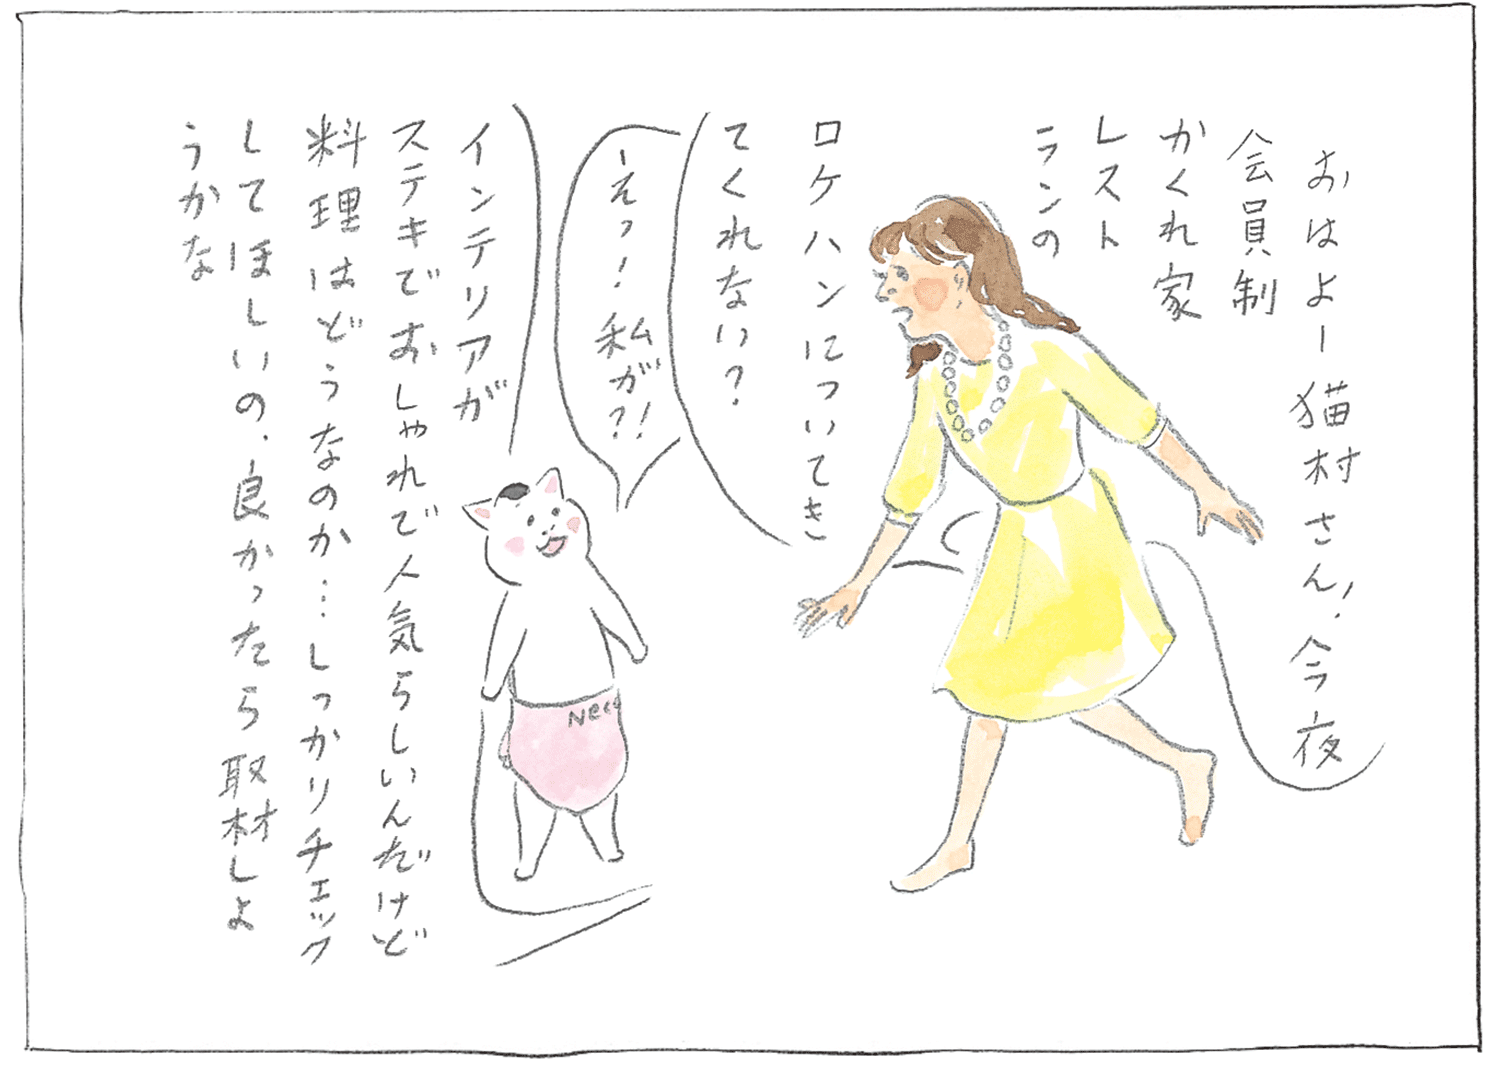 おはよー猫村さん!今夜
会員制
かくれ家
レスト
ランの
ロケハンについてき
てくれない?
えっ!私が?!
インテリアが
ステキでおしゃれで人気らしいんだけど
料理はどうなのか…しっかりチェック
してほしいの.良かったら取材しよ
うかな